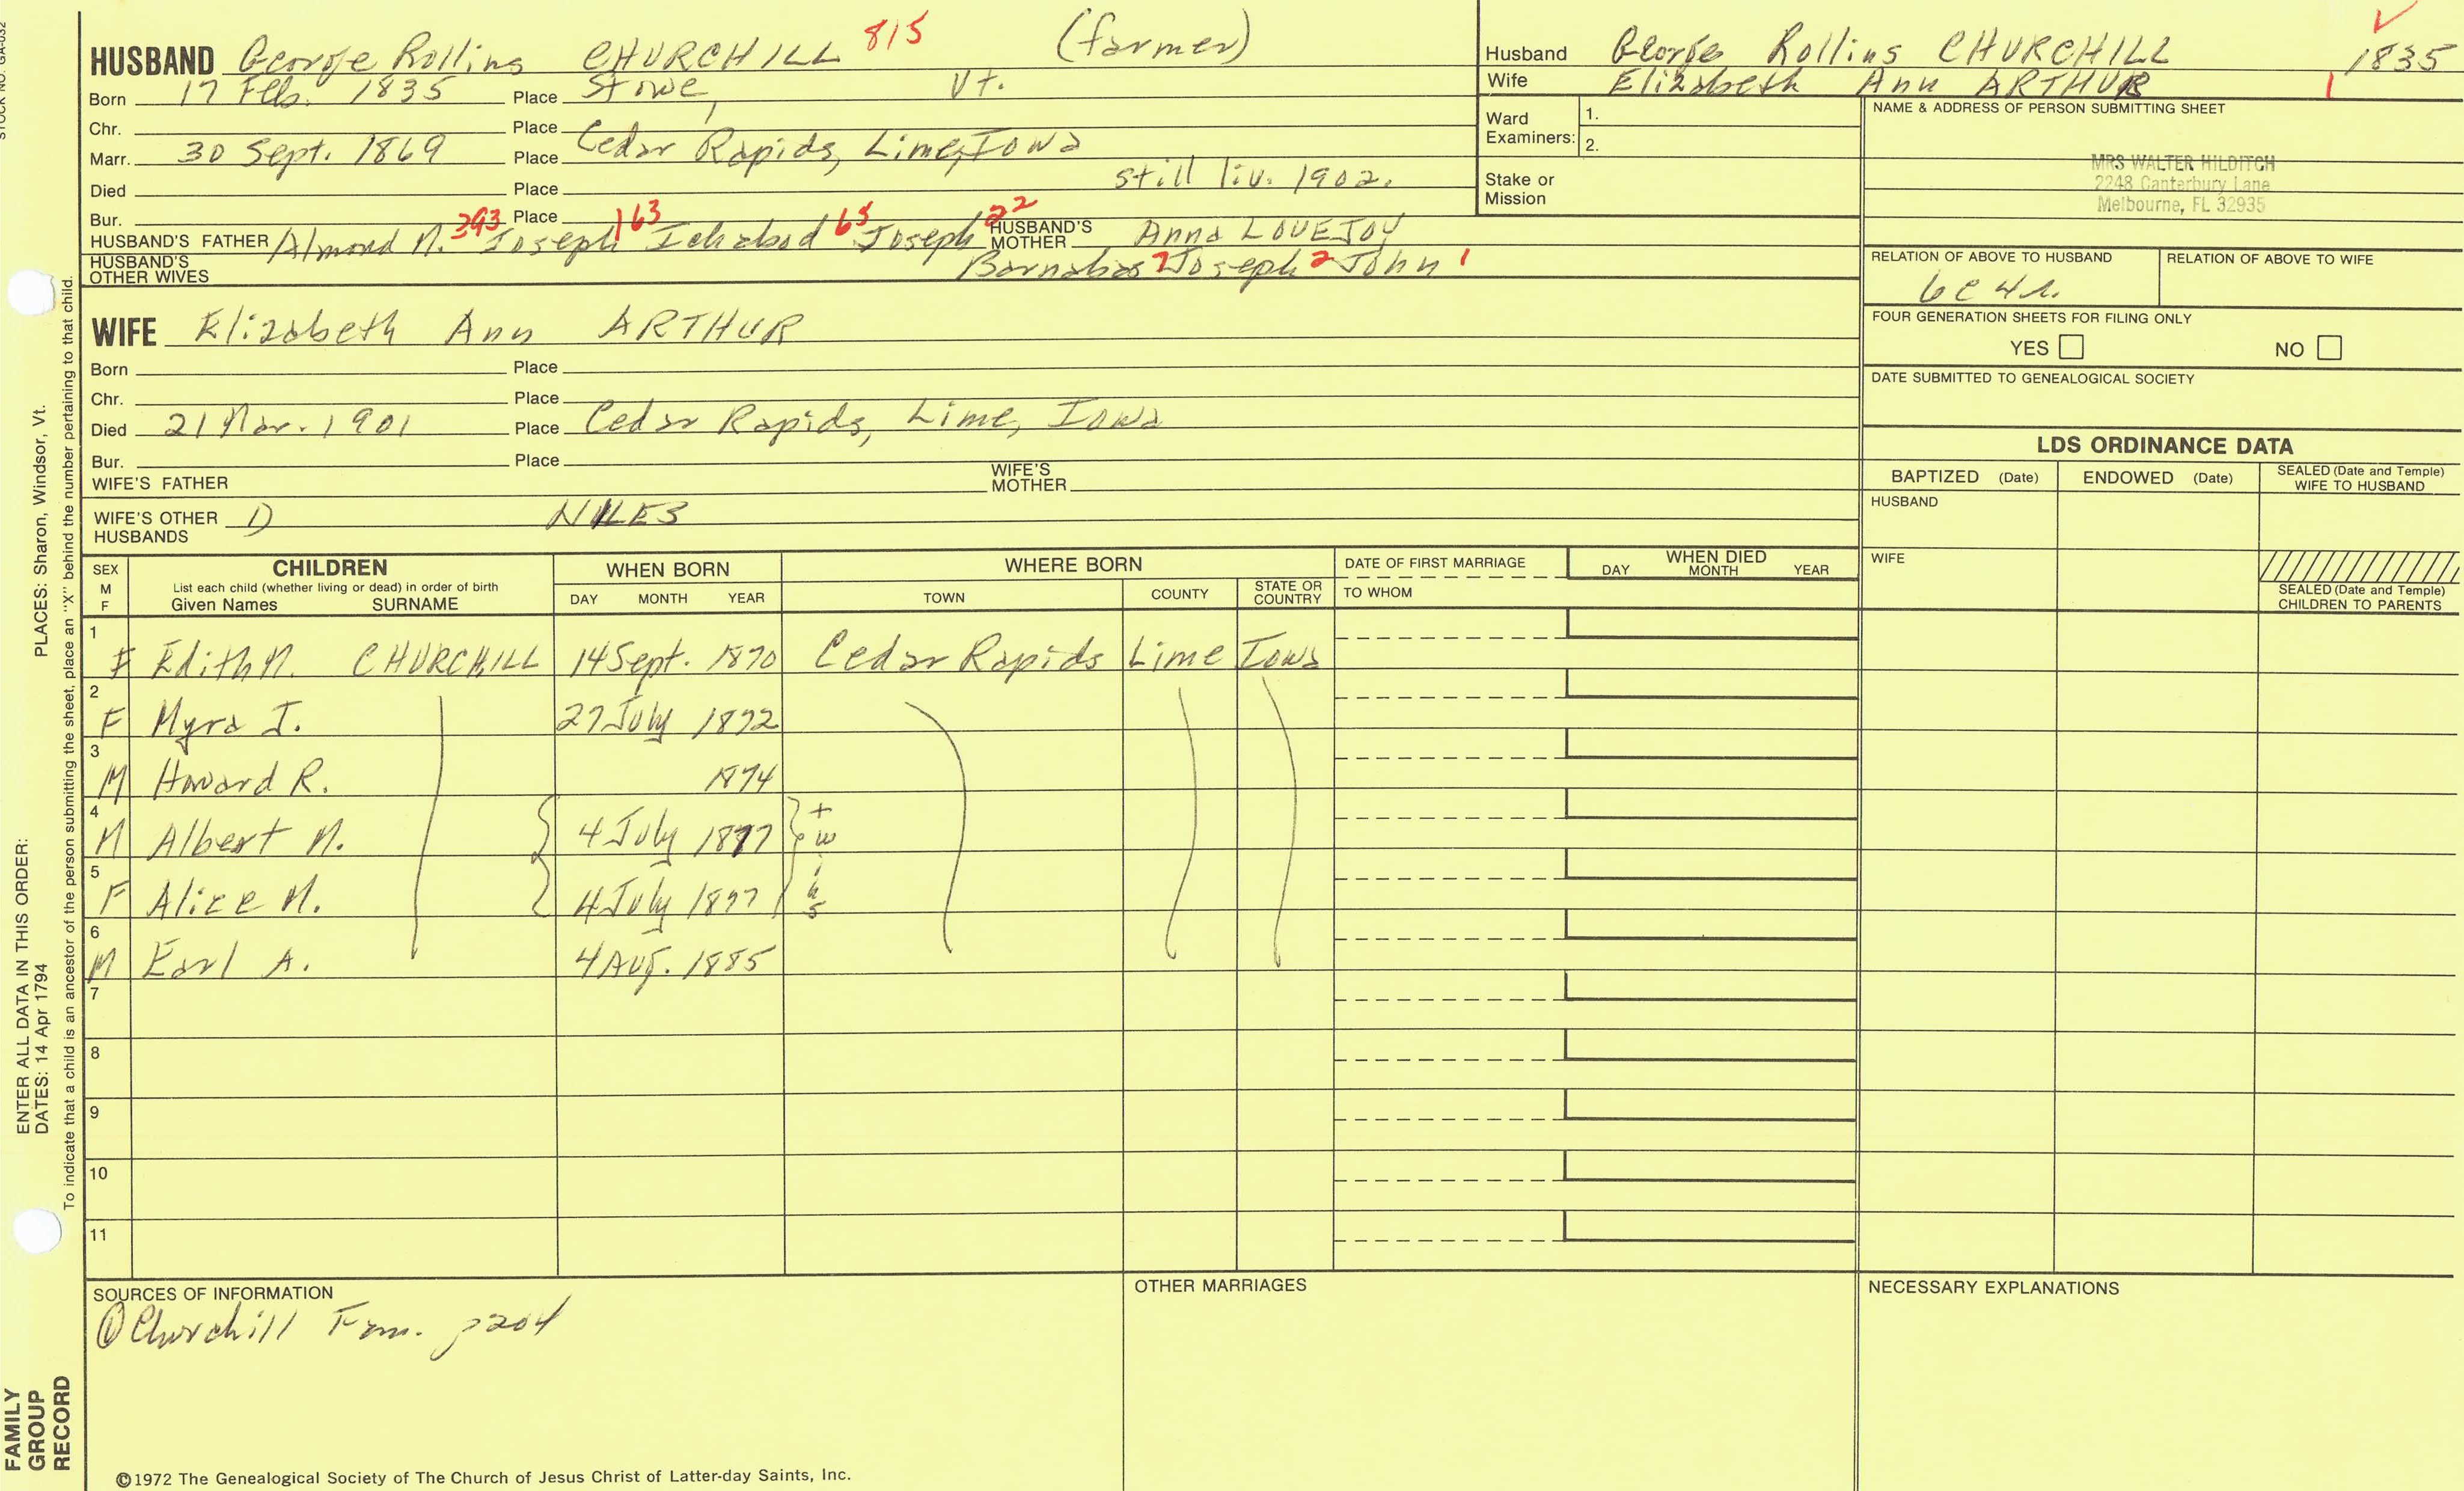 STOCK NO. GA-032
HUSBAND George Rollins CHURCHILL 815 (farmer)
Born 17 Feb. 1835 Place Stowe, Vt.
Chr. Place
Marr. 30 Sept. 1869 Place Cedar Rapids, Lime, Iowa
Died Place still liv. 1902.
Bur. Place
HUSBAND'S FATHER Almond N. 393 Joseph 163 Ichabod 65 Joseph 22 HUSBAND'S MOTHER Anna LOVEJOY
HUSBAND'S OTHER WIVES Barnabas 7 Joseph 2 John 1
Husband George Rollins CHURCHILL 1835
Wife Elizabeth Ann ARTHUR 1
Ward Examiners: 1.
2.
Stake or Mission
NAME & ADDRESS OF PERSON SUBMITTING SHEET
MRS WALTER HILDITCH
2248 Canterbury Lane
Melbourne, FL 32935
RELATION OF ABOVE TO HUSBAND RELATION OF ABOVE TO WIFE
6c4r.
FOUR GENERATION SHEETS FOR FILING ONLY
YES NO
DATE SUBMITTED TO GENEALOGICAL SOCIETY
WIFE Elizabeth Ann ARTHUR
Born Place
Chr. Place
Died 21 Mar. 1901 Place Cedar Rapids, Lime, Iowa
Bur. Place
WIFE'S FATHER WIFE'S MOTHER
WIFE'S OTHER HUSBANDS 1) NILES
LDS ORDINANCE DATA
BAPTIZED (Date) ENDOWED (Date) SEALED (Date and Temple) WIFE TO HUSBAND
HUSBAND
WIFE
SEALED (Date and Temple) CHILDREN TO PARENTS
SEX M F CHILDREN List each child (whether living or dead) in order of birth Given Names SURNAME
WHEN BORN DAY MONTH YEAR
WHERE BORN TOWN COUNTY STATE OR COUNTRY
DATE OF FIRST MARRIAGE TO WHOM
WHEN DIED DAY MONTH YEAR
1 F Edith M. CHURCHILL 14 Sept. 1870 Cedar Rapids Lime Iowa
2 F Myra J. 27 July 1872
3 M Howard R. 1874
4 M Albert N. 4 July 1877 twins
5 F Alice M. 4 July 1877
6 M Earl A. 4 Aug. 1885
7
8
9
10
11
SOURCES OF INFORMATION
① Churchill Fam. p204
OTHER MARRIAGES
NECESSARY EXPLANATIONS
©1972 The Genealogical Society of The Church of Jesus Christ of Latter-day Saints, Inc.
FAMILY GROUP RECORD
ENTER ALL DATA IN THIS ORDER:
DATES: 14 Apr 1794 PLACES: Sharon, Windsor, Vt.
To indicate that a child is an ancestor of the person submitting the sheet, place an "X" behind the number pertaining to that child.